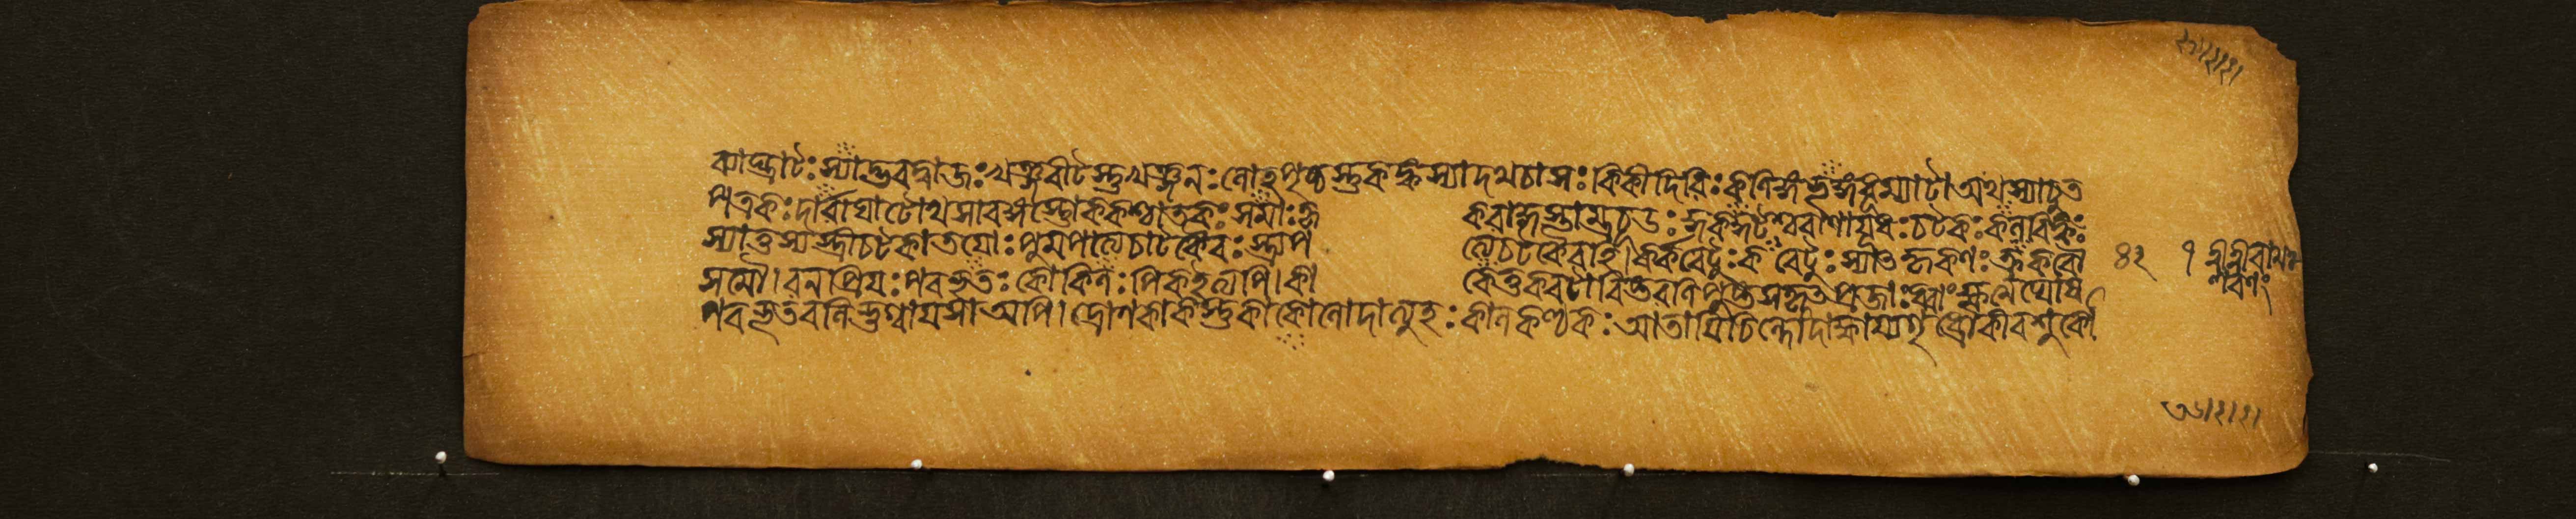 ব্যাঘ্রাটঃস্যাদ্ভরদ্বাজঃখঞ্জরীটস্তুখঞ্জনঃলোহপৃষ্ঠস্তুকঙ্কঃস্যাদথচাসঃকিকীদিবিঃকলিঙ্গভৃঙ্গধূম্যাটাঅথস্যাচ্ছত
পত্রকঃদার্বাঘাটোথসারঙ্গস্তোককশ্চাতকঃসমাঃকৃ কবাকুস্তাম্রচূডঃকুক্কুটশ্চরণায়ুধঃচটকঃকলবিঙ্কঃ
স্যাত্তস্যস্ত্রীচটকাতয়োঃপুমপত্যেচাটকৈরঃস্ত্র্যপ ত্যেচটকৈবহি।কর্করেটুঃকরেটুঃস্যাৎকৃকণঃক্রকরৌ ৪২ ১ শ্রীশ্রীরামঃ
সমৌ।বনপ্রিয়ঃপরভৃতঃকোকিলঃপিকইত্যপি।কা কেতুকরটারিষ্টবলিপুষ্টসকৃৎপ্রজাঃধ্বাংক্ষাত্মঘোষ শরণং
পরভৃতবলিভুগ্বায়সাঅপি।দ্রোণকাকস্তুকাকোলোদাত্যূহঃকালকণ্ঠকঃআতায়িচিল্লৌদাক্ষায়্যগৃধ্রৌকীরশুকৌ